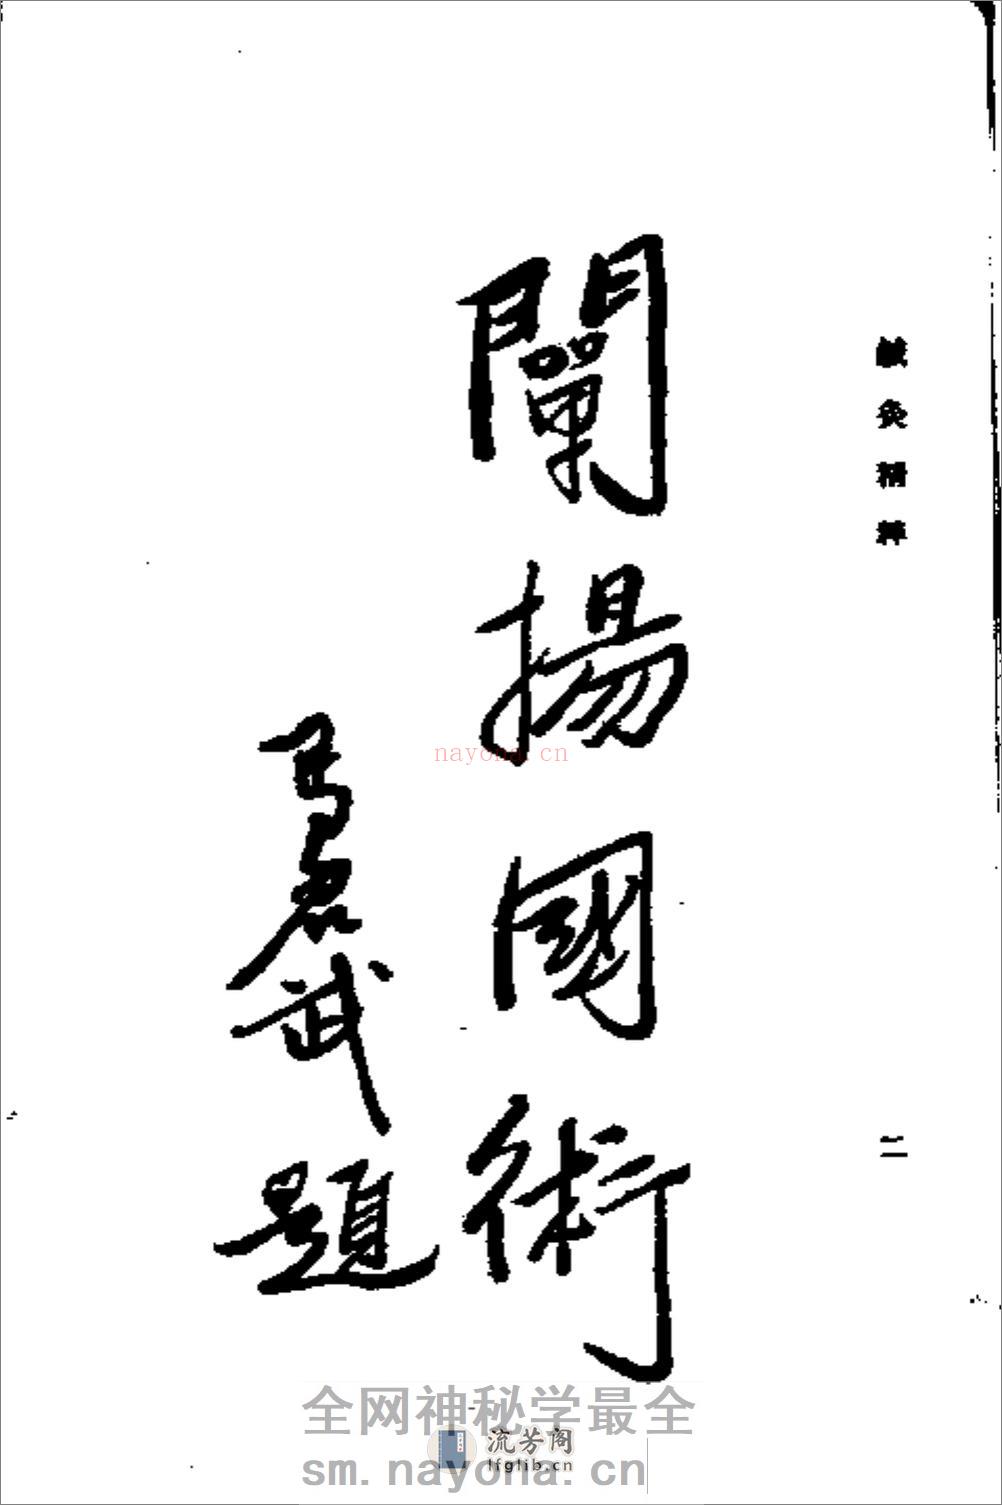 鍼灸精粹
二
闡揚國術
馬君武題
nayona.cn
全网神秘学最全
流芳阁
lfglib.cn
sm.nayona.cn